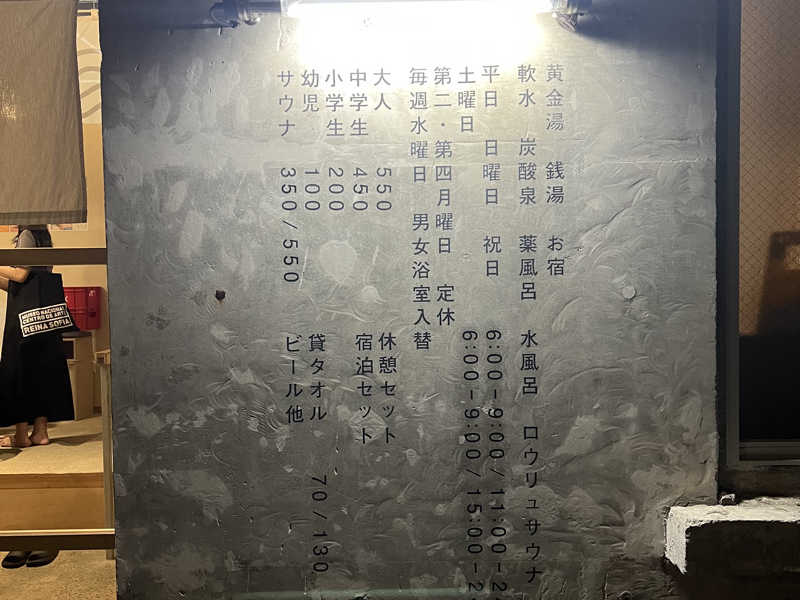 黄金湯 銭湯 お宿
軟水 炭酸泉 薬風呂 水風呂 ロウリュサウナ
平日 日曜日 祝日 6:00-9:00/11:00-2
土曜日 6:00-9:00/15:00-2
第二・第四月曜日 定休
毎週水曜日 男女浴室入替
大人 550 休憩セット
中学生 450 宿泊セット
小学生 200
幼児 100 貸タオル 70/130
サウナ 350/550 ビール他
MUSEO NACIONAL
CENTRO DE ARTE
REINA SOFIA